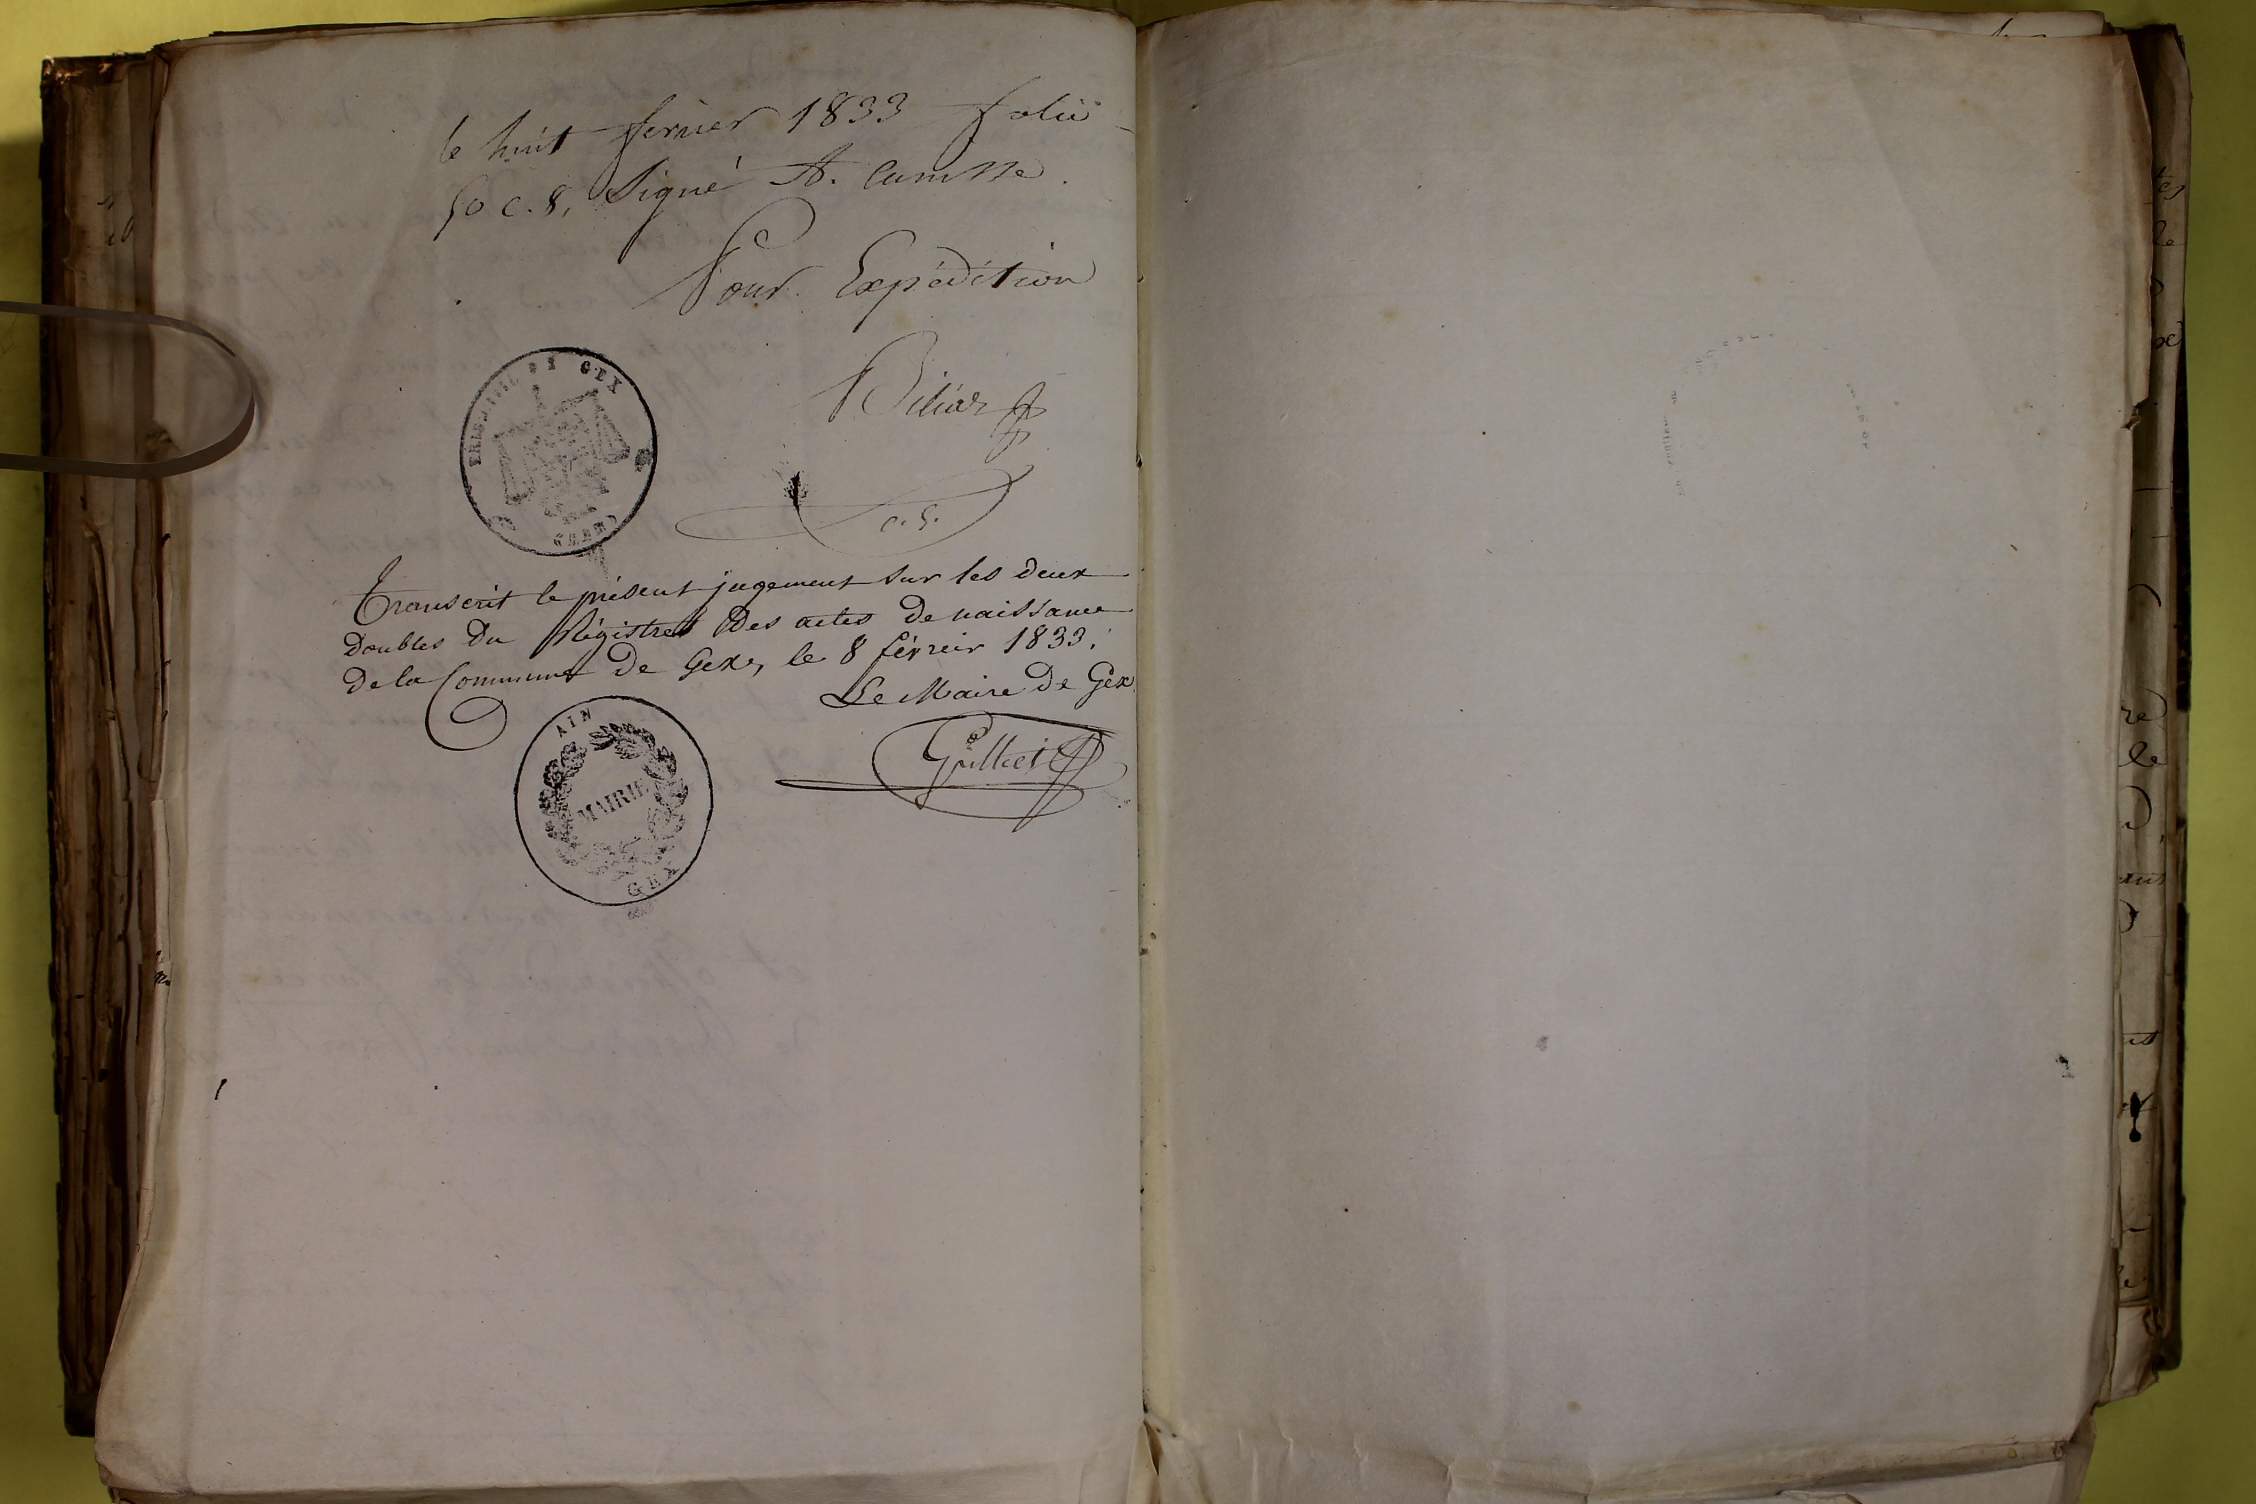 le huit fevrier 1833 folio
50 c. 8, Signé A.
Pour Expédition
c. g.
TRIB. CIVIL DE GEX
(GREFFE)
Transcrit le présent jugement sur les deux
doubles du Régistres des actes de naissance
de la Commune de Gex, le 8 février 1833.
Le Maire de Gex
AIN
MAIRIE
GEX